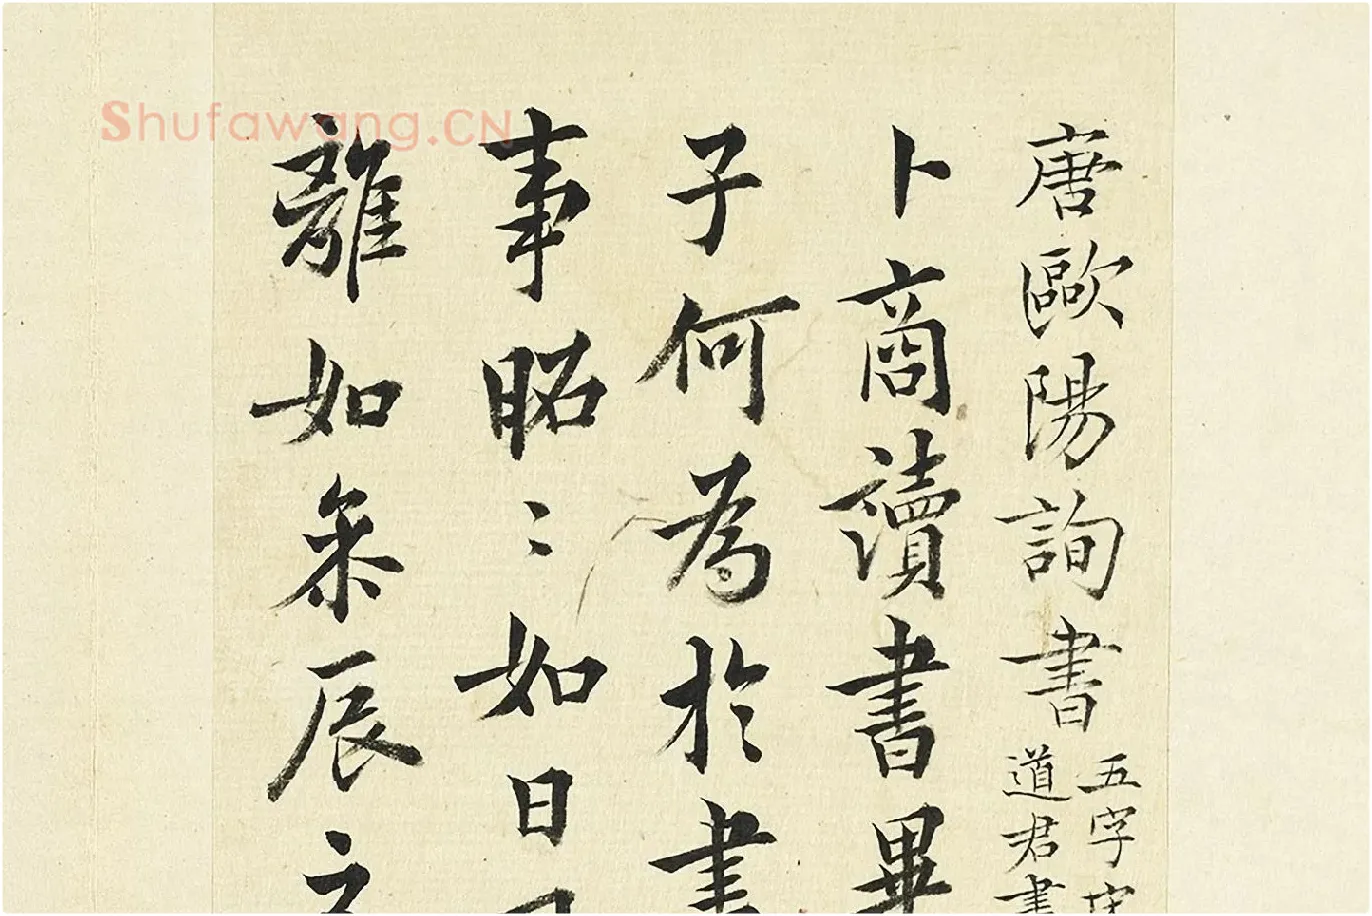 唐歐陽詢書
五字
道君書
卜商讀書畢
子何為於書
事昭〻如日
離如參辰之
Shufawang.CN